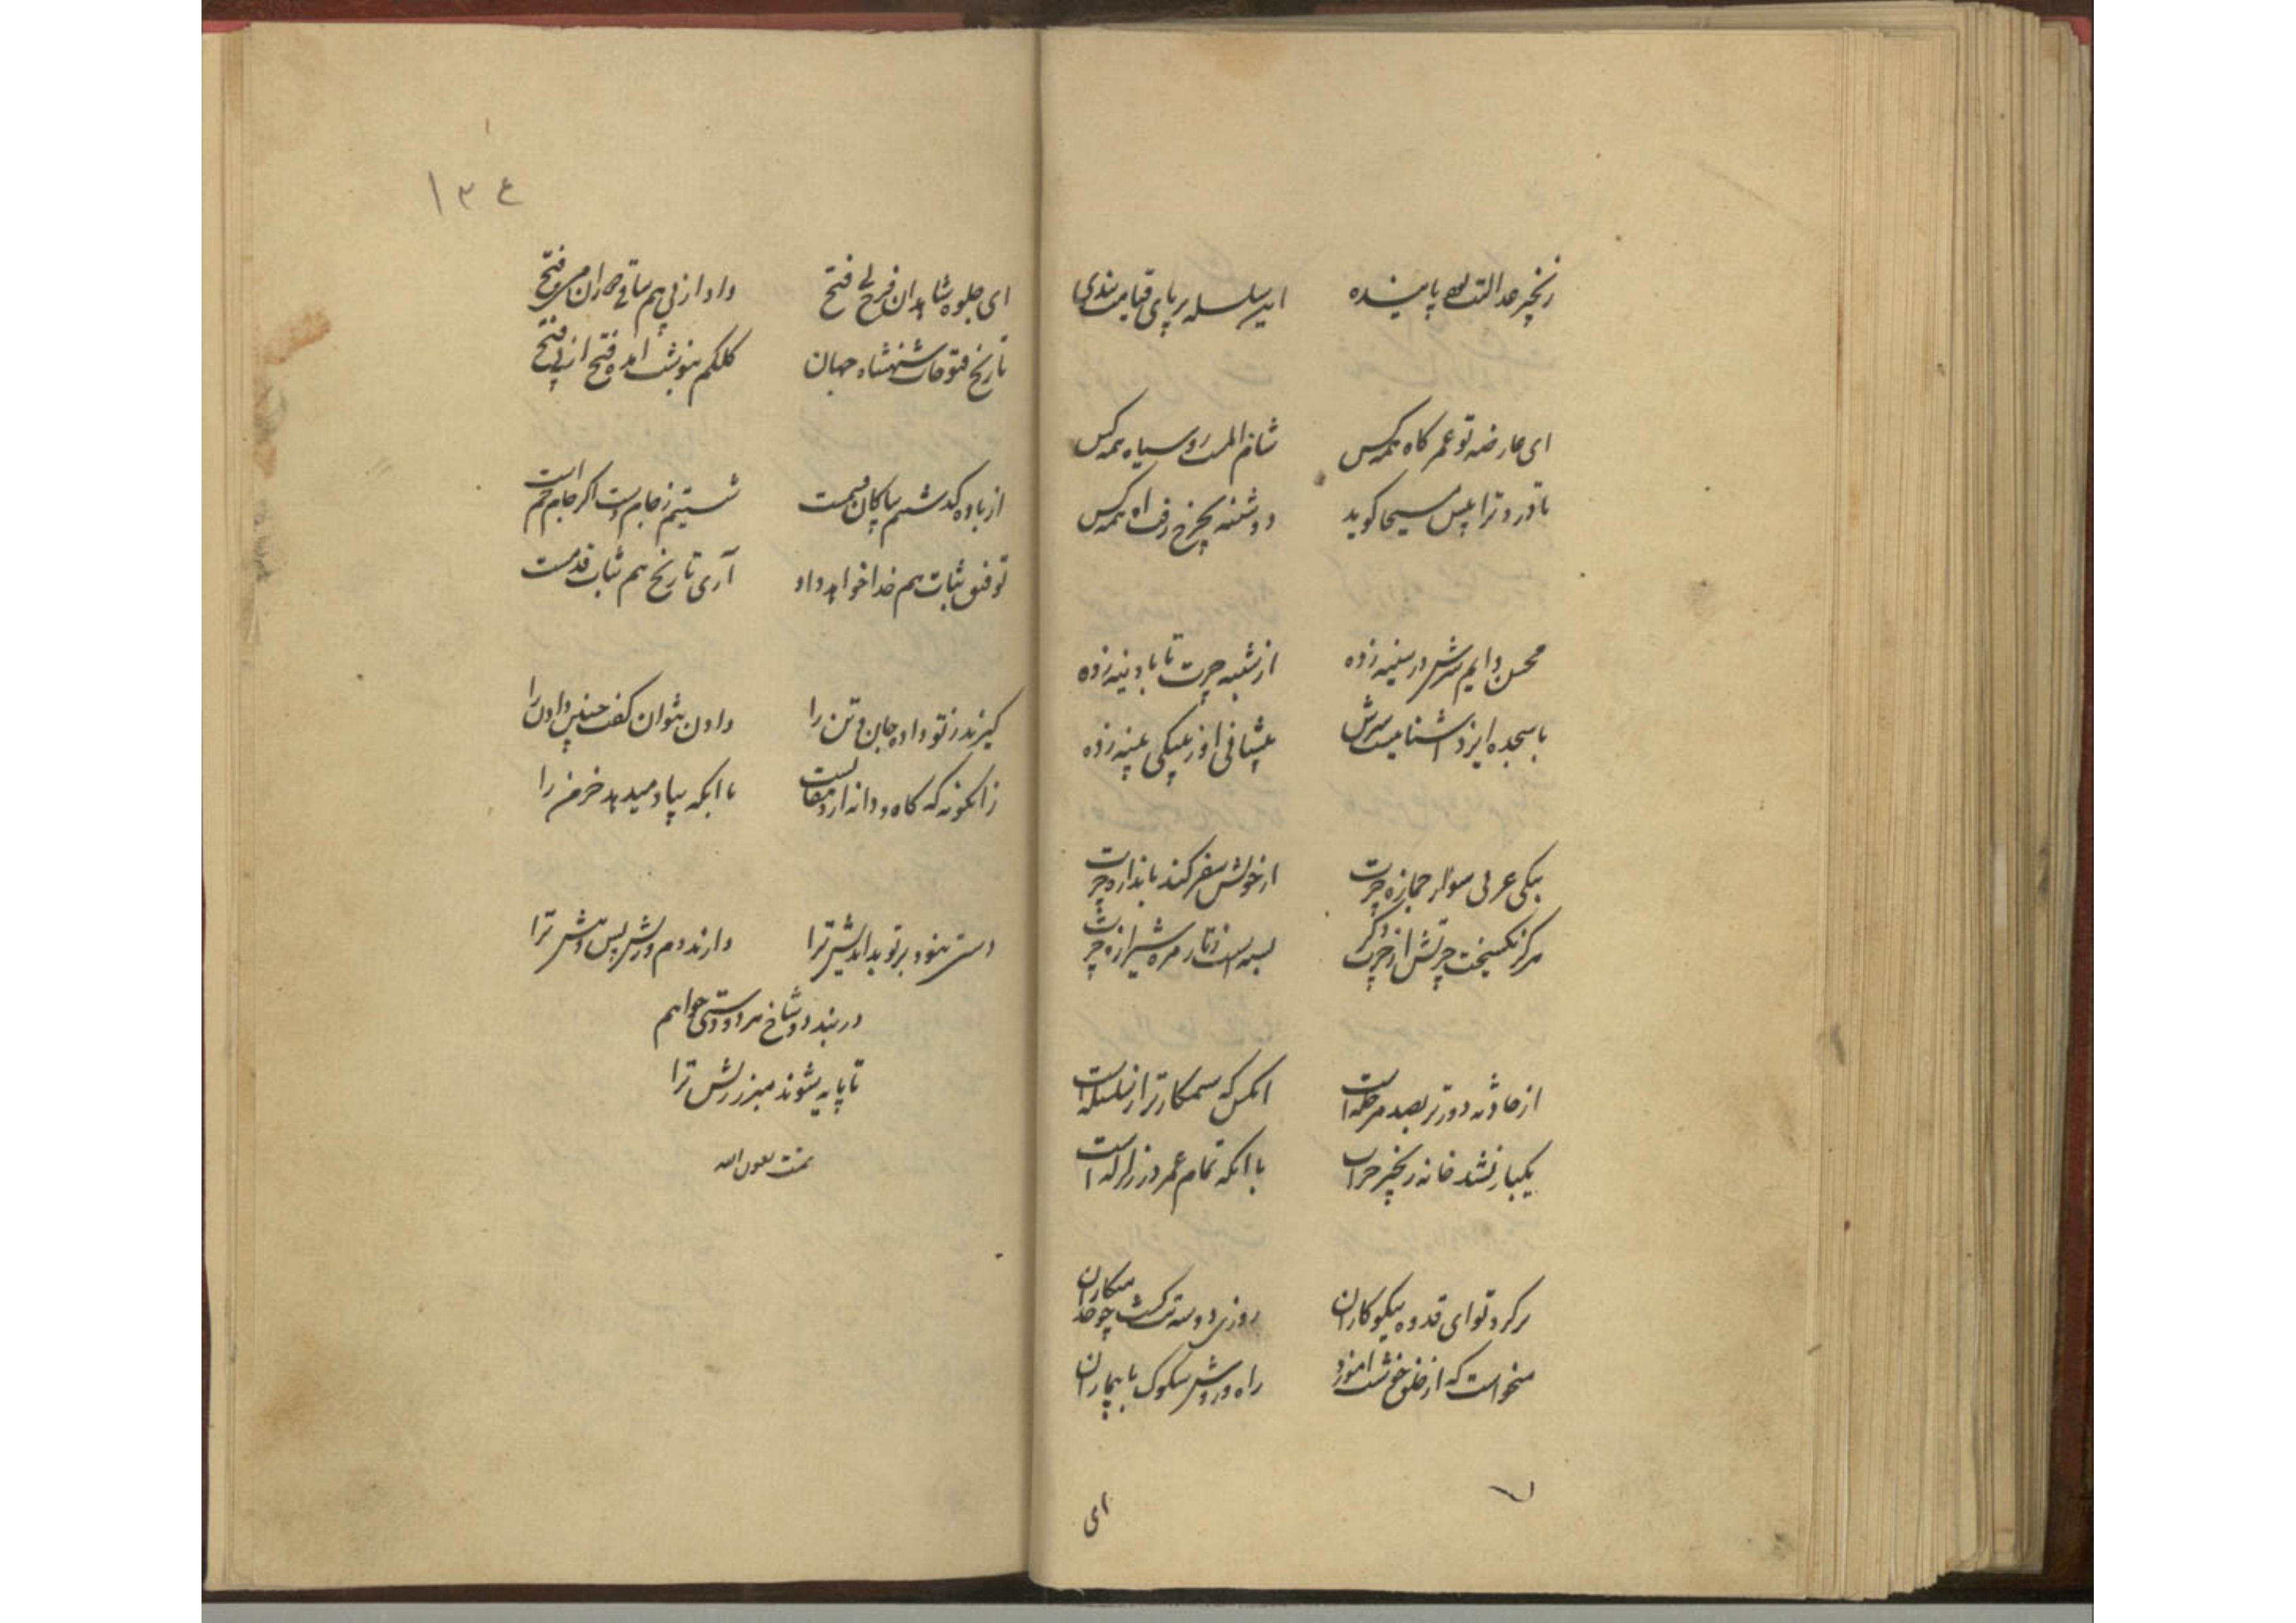 زنجیر عدالت پاینده این سلسله بر پای قیامت بندی
ای عارضه تو عمر کاه همه کس شام المت روسیاه همه کس
تا درد ترا پیش مسیحا گوید دوشینه بچرخ رفت آه همه کس
محسن دایم سرش در سینه زده از شبه حیرت تا با دینه زده
با سجده ایزد آشنا نیست سرش پیشانی او ز پیکی پینه زده
بیکی عربی سوار جمازه چرت از خویش سفر کند باندازه چرت
هرگز نگسیخت چرتش از چرت دگر بسته است ز تار مژه شیرازه چرت
از حادثه دورتر بصد مرحله است انکس که ستمکارتر از سلسله است
یکبار نشد خانه زنجیر خراب با انکه تمام عمر در زلزله است
بر کرد تو ای قدوه نیکوکاران روزی دو سه تب گشت چو خدمتکاران
میخواست که از خلق خوشت آموزد راه و روش سلوک با بیماران
ای
۱۳۴
ای جلوه شاهدان فتح داد از پی هم ساقی فتح
تاریخ فتوحات شهنشاه جهان کلکم بنوشت آمده فتح از پی فتح
از باده گذشتیم شستیم ز جام دست اگر جام جم است
توفیق ثبات هم خدا خواهد داد آری تاریخ هم ثبات قدمست
گیرند ز تو داده جان و تن را دادن نتوان گفت چنین دادن را
زانگونه که کاه و دانه از دهقانست با آنکه بباد میدهد خرمن را
دستی نبود بر تو بداندیش ترا دارند دم ورش پس و پیش ترا
در بند دوشاخ هر دو دستی خواهم
تا پایه شوند میز ریش ترا
تمت بعون الله